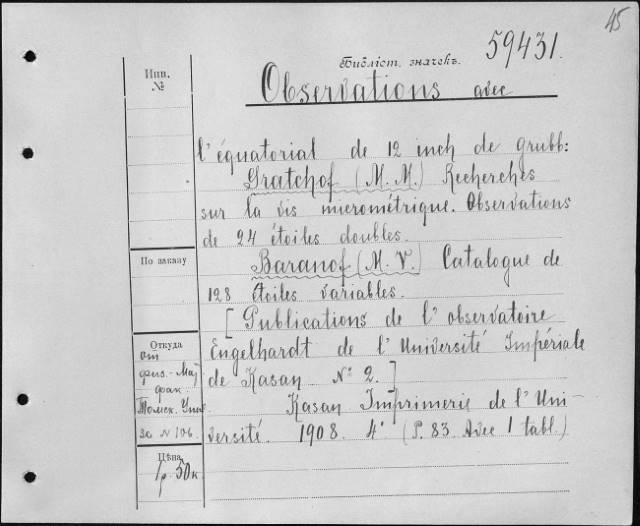 45
59431.
Библіот. значекъ.
Инв.
№
Observations avec
l'équatorial de 12 inch de Grubb:
Gratchof (M. M.) Recherches
sur la vis micrométrique. Observations
de 24 étoiles doubles.
По заказу
Baranof (M. V.) Catalogue de
128 étoiles variables.
[Publications de l'observatoire
Откуда
Engelhardt de l'Université Impériale
от
физ.-Мат
фак.
de Kasan № 2.]
Томск. Унив.
Kasan Imprimerie de l'Uni-
за № 106.
versité. 1908. 4° (P. 83. Avec 1 tabl.)
Цѣна
1р. 50к